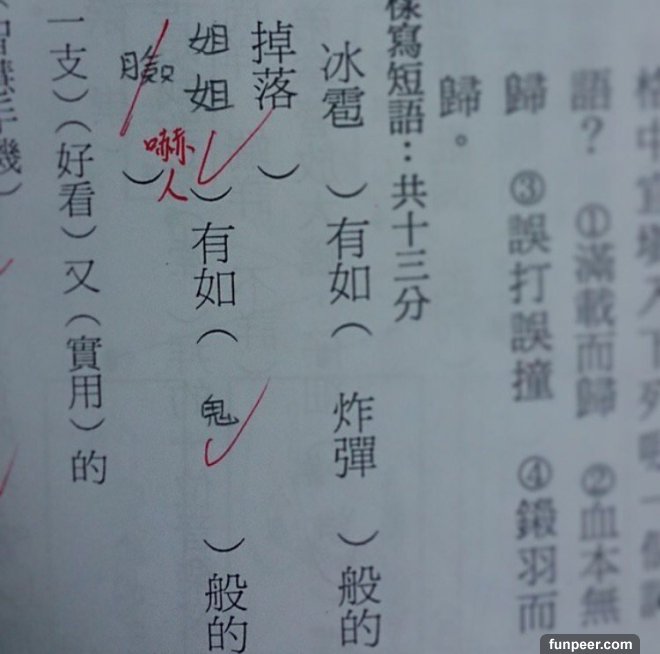 語?①滿載而歸 ②血本無
歸 ③誤打誤撞 ④鎩羽而
歸。
樣寫短語:共十三分
冰雹 )有如( 炸彈 )般的
掉落 )
姐姐 )有如( 鬼 )般的
臉 )
嚇人
一支)(好看)又(實用)的
手機)
funpeer.com